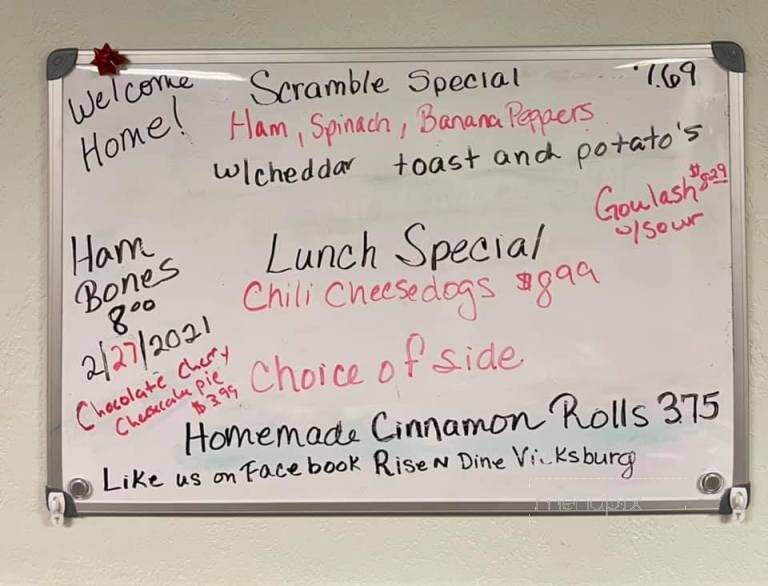 Welcome
Home!
Scramble Special 7.69
Ham, Spinach, Banana Peppers
w/cheddar toast and potato's
Goulash $8.29
w/sour
Ham
Bones
8.00
2/27/2021
Chocolate Cherry
Cheesecake Pie
$3.99
Lunch Special
Chili Cheesedogs $8.99
Choice of side
Homemade Cinnamon Rolls 3.75
Like us on Facebook Rise N Dine Vicksburg
menupix